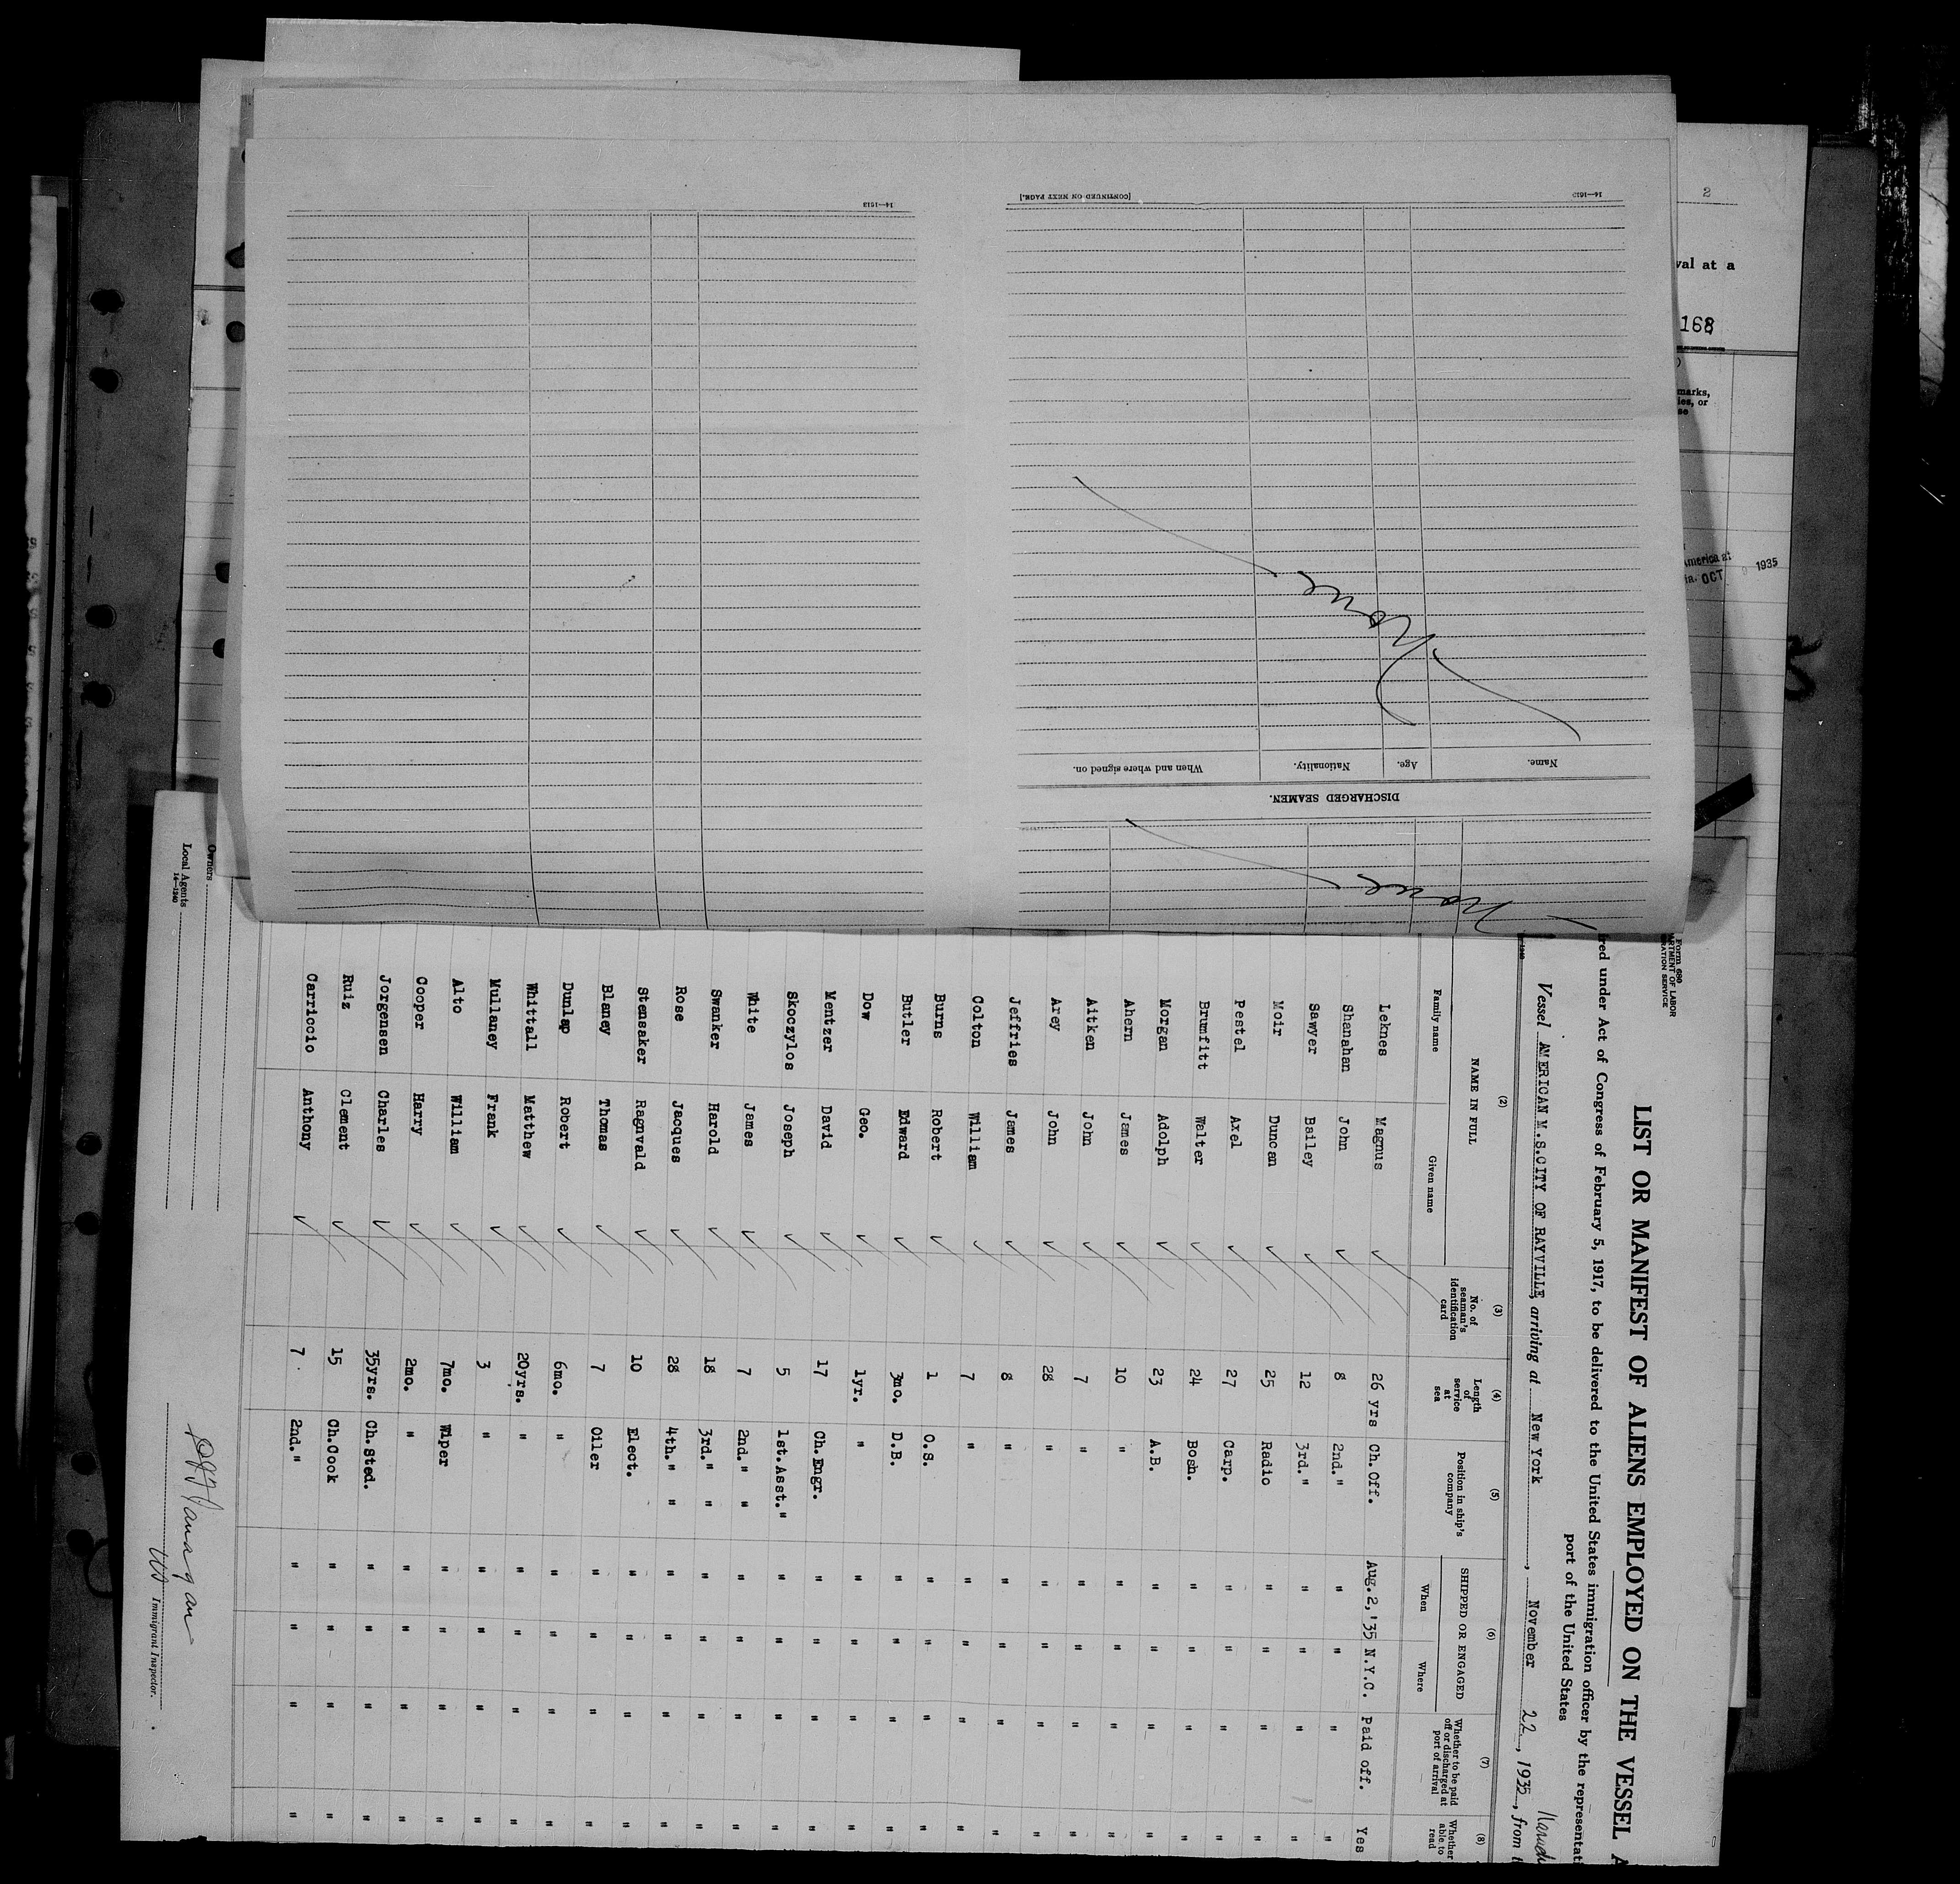 14—1613
[CONTINUED ON NEXT PAGE.]
14—1613
None
Name.
Age.
Nationality.
When and where signed on.
DISCHARGED SEAMEN.
None
2
val at a
168
marks,
ies, or
se
America at
OCT 1935
Owners
Local Agents
14—1240
Form 680
ARTMENT OF LABOR
RATION SERVICE
LIST OR MANIFEST OF ALIENS EMPLOYED ON THE VESSEL A
red under Act of Congress of February 5, 1917, to be delivered to the United States immigration officer by the representati
port of the United States
Vessel AMERICAN M.S.CITY OF RAYVILLE, arriving at New York, November 22, 1935, from
(2) (3) (4) (5) (6) (7) (8)
NAME IN FULL
Family name Given name
No. of seaman's identification card
Length of service at sea
Position in ship's company
SHIPPED OR ENGAGED
When Where
Whether to be paid off or discharged at port of arrival
Whether able to read
Leknes Magnus 26 yrs Ch. Off. Aug. 2, '35 N.Y.C. Paid off. Yes
Shanahan John 8 2nd. " " " " "
Sawyer Bailey 12 3rd. " " " " "
Moir Duncan 25 Radio " " " "
Pestel Axel 27 Carp. " " " "
Brumfitt Walter 24 Bosn. " " " "
Morgan Adolph 23 A.B. " " " "
Ahern James 10 " " " " "
Aitken John 7 " " " " "
Arey John 28 " " " " "
Jeffries James 8 " " " " "
Colton William 7 " " " " "
Burns Robert 1 O.S. " " " "
Butler Edward 3mo. D.B. " " " "
Dow Geo. 1yr. " " " " "
Mentzer David 17 Ch. Engr. " " " "
Skoczylos Joseph 5 1st. Asst. " " " " "
White James 7 2nd. " " " " " "
Swanker Harold 18 3rd. " " " " " "
Rose Jacques 28 4th. " " " " " "
Stensaker Ragnvald 10 Elect. " " " "
Blaney Thomas 7 Oiler " " " "
Dunlap Robert 6mo. " " " " "
Whittall Matthew 20yrs. " " " " "
Mullaney Frank 3 " " " " "
Alto William 7mo. Wiper " " " "
Cooper Harry 2mo. " " " " "
Jorgensen Charles 35yrs. Ch. Sted. " " " "
Ruiz Clement 15 Ch. Cook " " " "
Carriccio Anthony 7 2nd. " " " " "
US Immigrant Inspector.